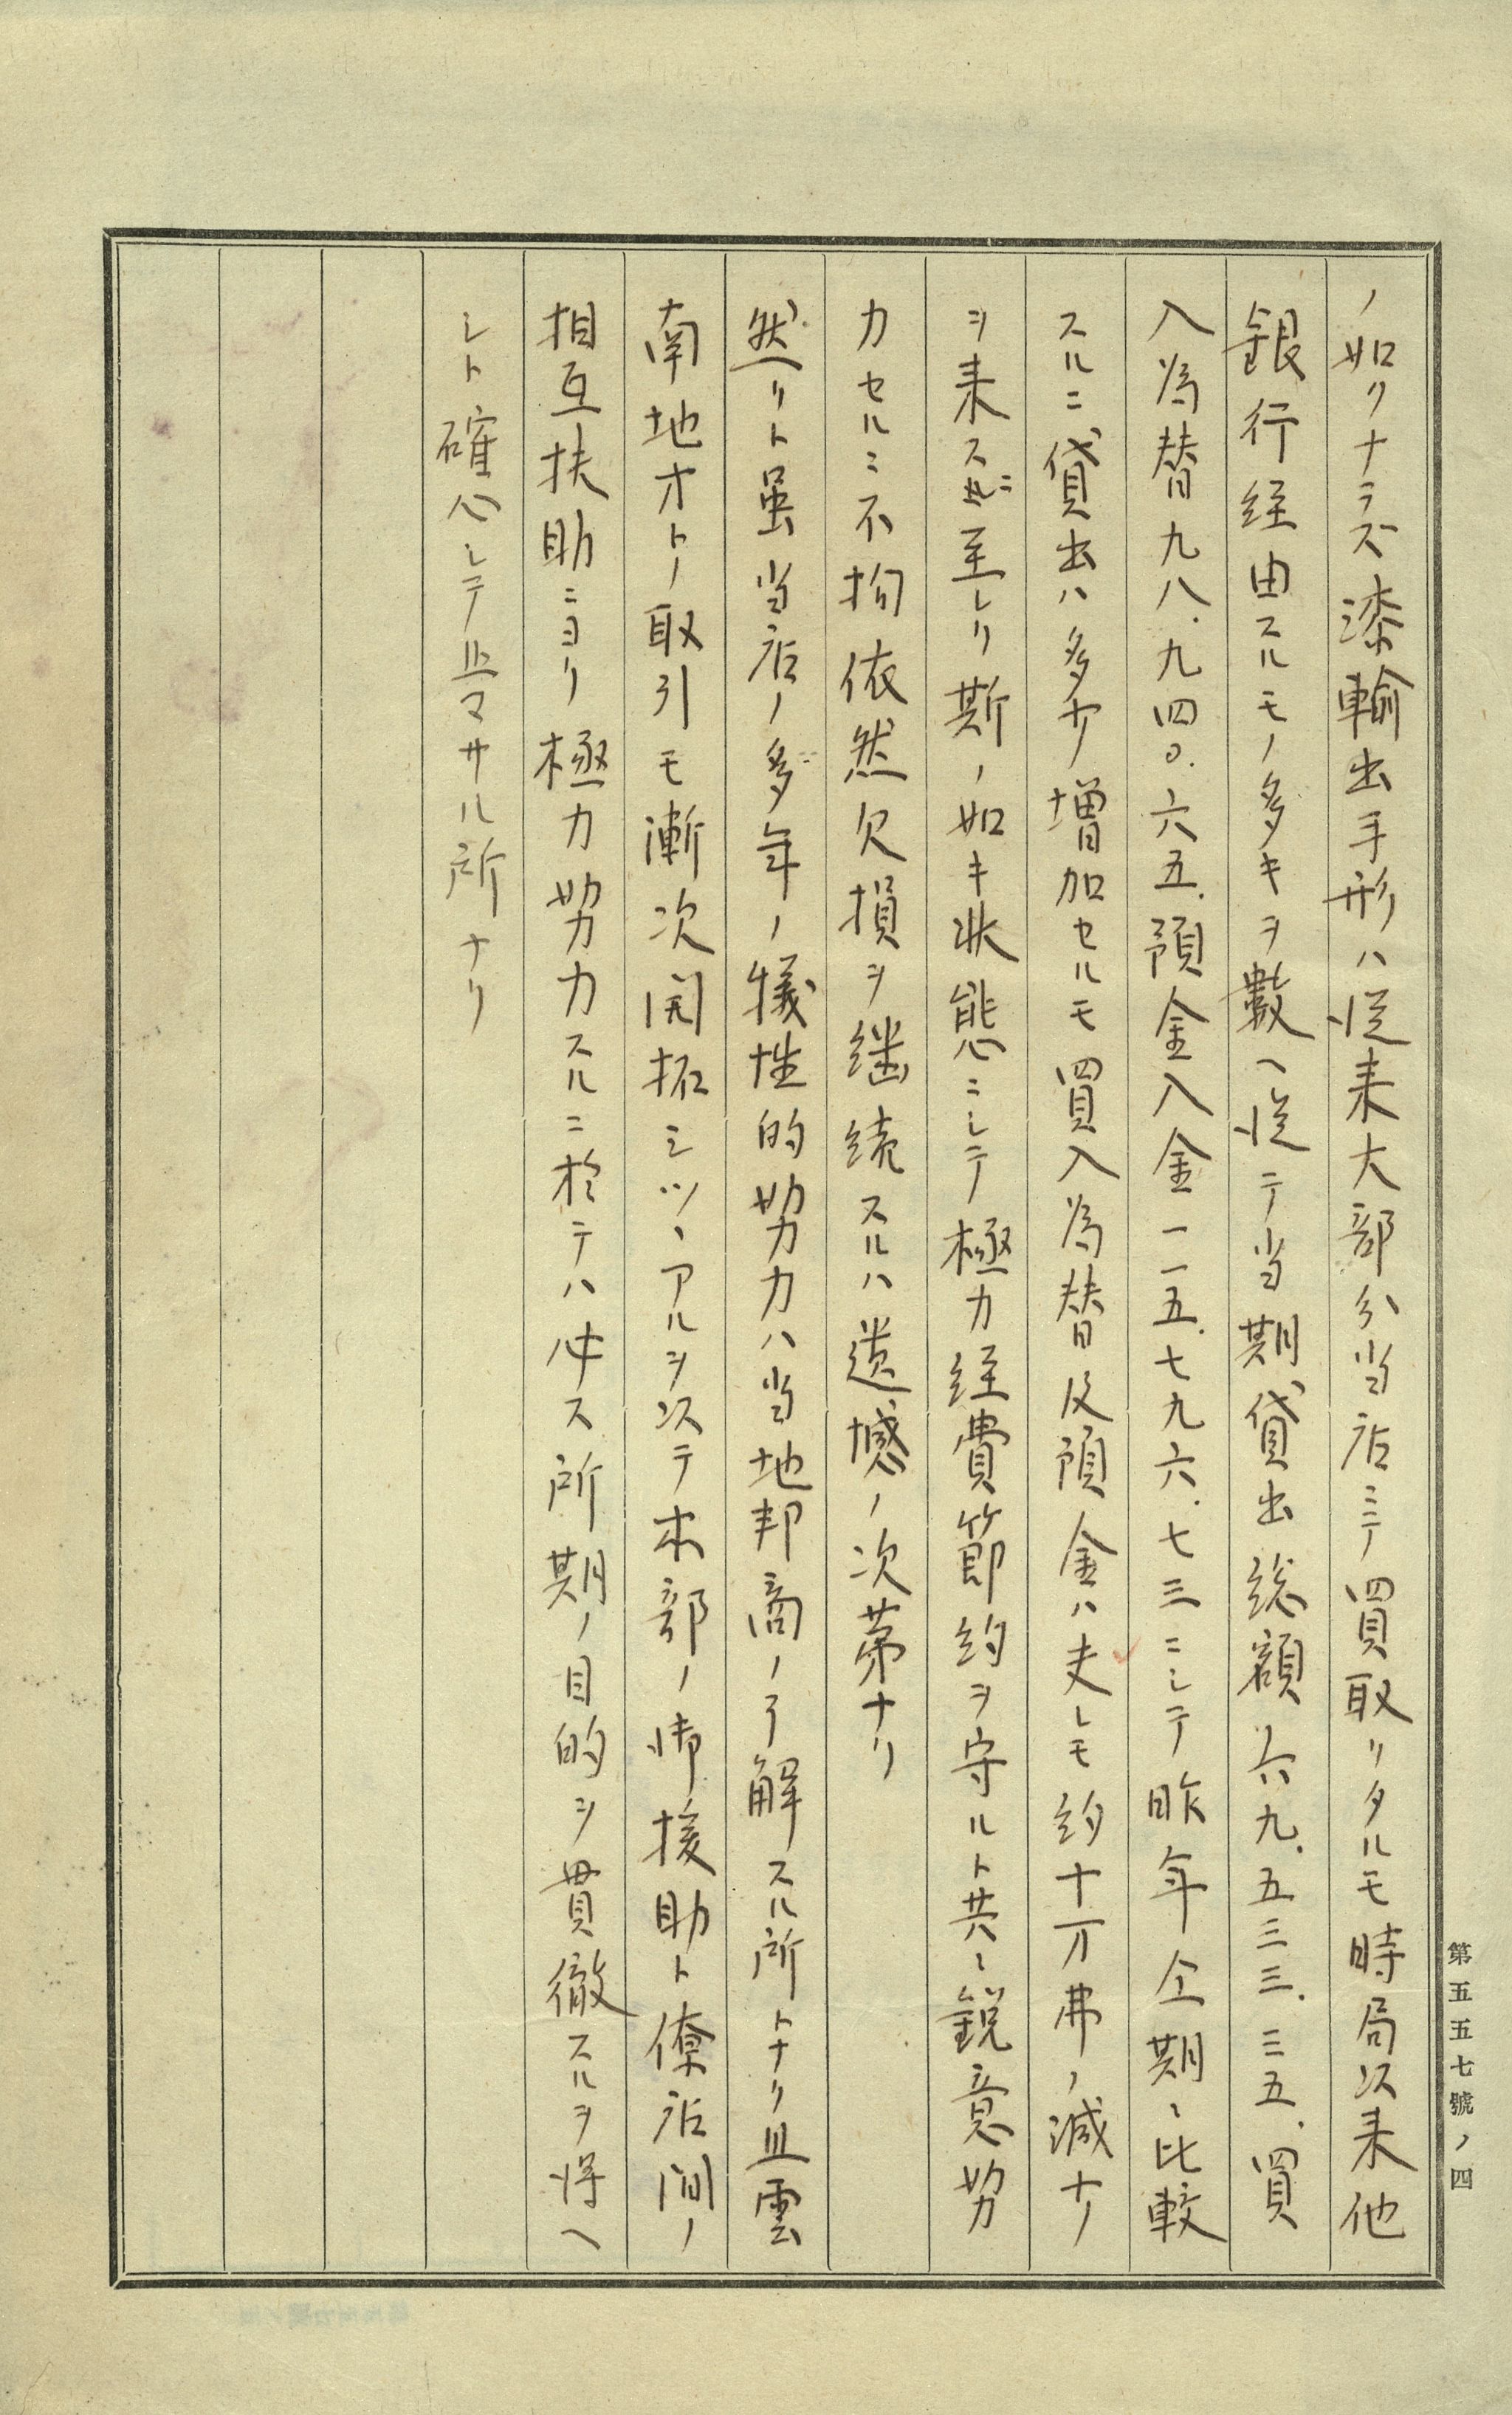 ノ如クナラズ漆輸出手形ハ従来大部分当店ニテ買取リタルモ時局以来他
銀行経由スルモノ多キヲ数ヘ従テ当期貸出総額六九.五三三.三五.買
入為替九八.九四〇.六五.預金入金一一五.七九六.七三ニシテ昨年仝期ニ比較
スルニ貸出ハ多少増加セルモ買入為替及預金ハ夫レモ約十万弗ノ減少
ヲ来スニ至レリ斯ノ如キ状態ニシテ極力経費節約ヲ守ルト共ニ鋭意努
力セルニ不拘依然欠損ヲ継続スルハ遺憾ノ次第ナリ
然リト虽当店ノ多年ノ犠牲的努力ハ当地邦商ノ了解スル所トナリ且雲
南地方トノ取引モ漸次開拓シツヽアルヲ以テ本部ノ御援助ト僚店間ノ
相互扶助ニヨリ極力努力スルニ於テハ必ス所期ノ目的ヲ貫徹スルヲ得ヘ
シト確心シテ止マサル所ナリ
第五五七號ノ四